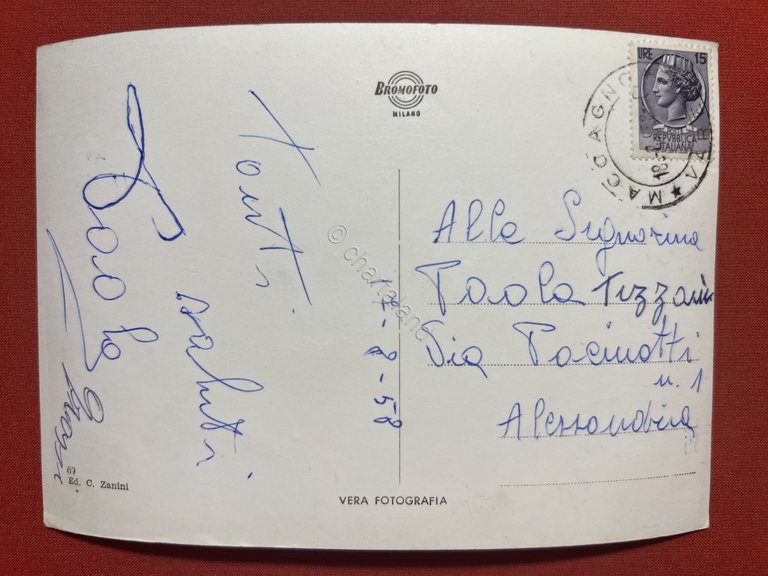 BROMOFOTO
MILANO
LIRE 15
POSTE
REPUBBLICA
ITALIANA
MACCAGNO
Tanti
saluti
Paola
17-8-58
Alla Signorina
Paola
Via Pacinotti
n. 1
Alessandria
69
Ed. C. Zanini
VERA FOTOGRAFIA